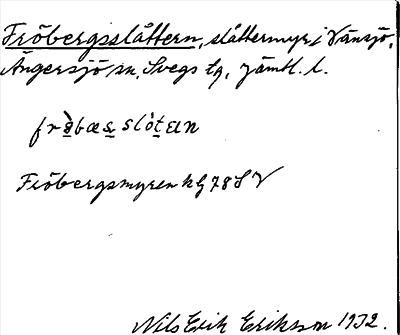 Fröbergsslåttern, slåttermyr i Vänsjö,
Ängersjö sn, Svegs tg, Jämtl. l.
Fröbergsmyren kg 78 S V
Nils Erik Eriksson 1932.